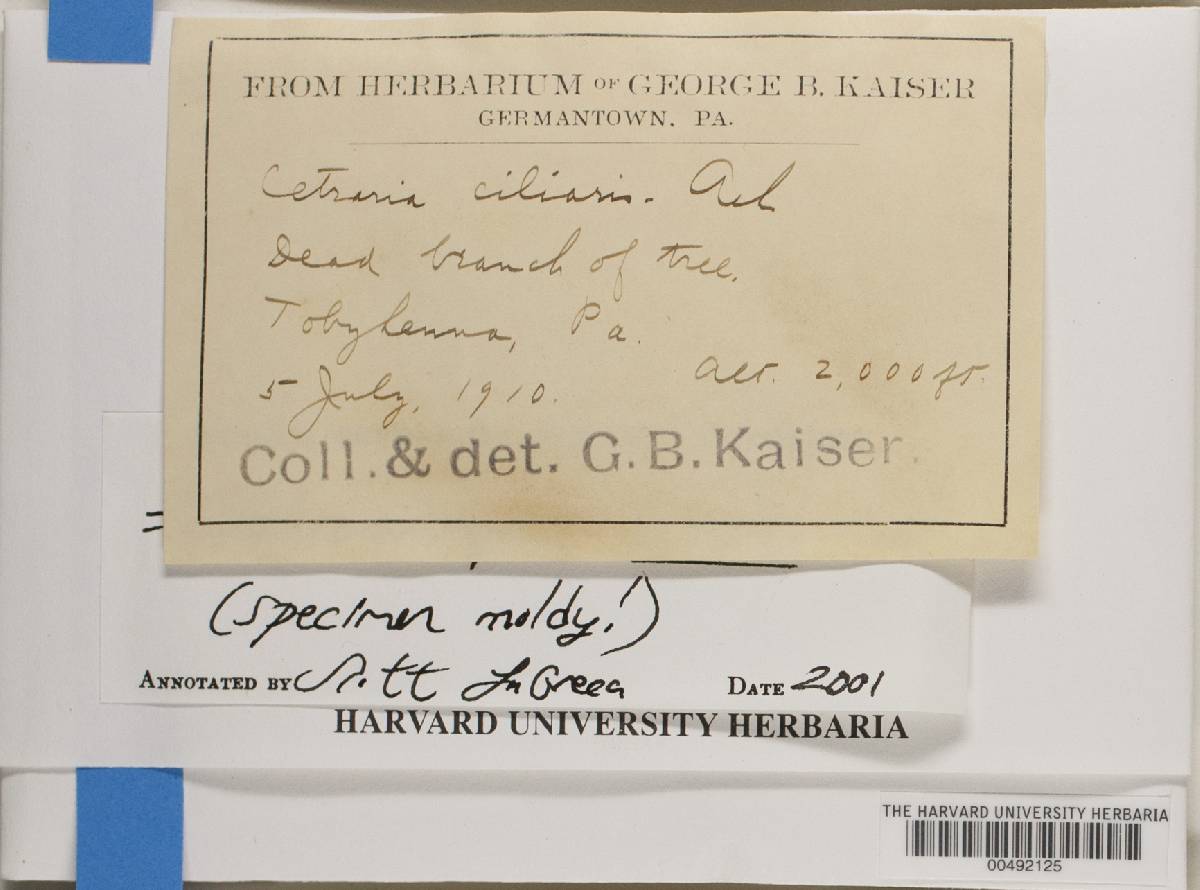 FROM HERBARIUM OF GEORGE B. KAISER
GERMANTOWN, PA.
Cetraria ciliaris. Ach
Dead branch of tree.
Tobyhanna, Pa.
5 July, 1910. Alt. 2,000 ft.
Coll. & det. G. B. Kaiser.
=
(specimen moldy!)
ANNOTATED BY Scott LaGreca DATE 2001
HARVARD UNIVERSITY HERBARIA
THE HARVARD UNIVERSITY HERBARIA
00492125